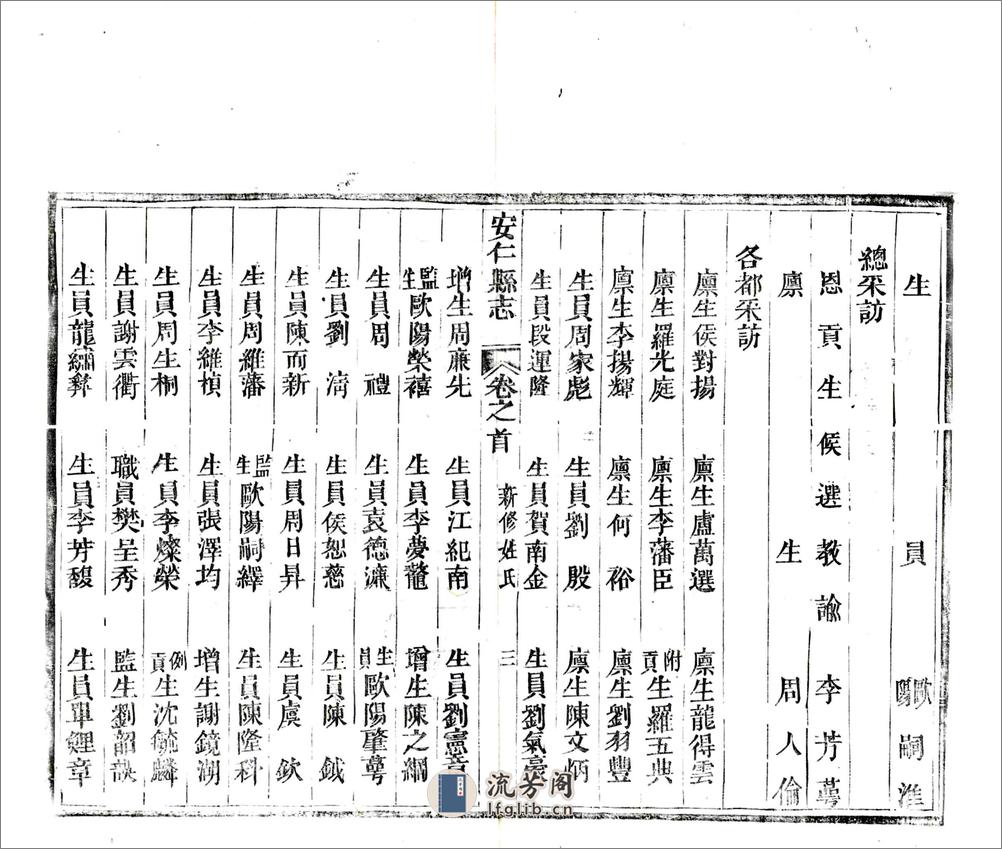 生員歐陽嗣淮
總采訪
恩貢生候選教諭李芳蕚
廩生周人倫
各都采訪
廩生侯對揚 廩生盧萬選 廩生龍得雲
廩生羅光庭 廩生李藩臣 附貢生羅五典
廩生李揚輝 廩生何裕 廩生劉羽豐
生員周家彪 生員劉殷 廩生陳文炳
生員段運隆 生員賀南金 生員劉氣豪
安仁縣志 卷之首 新修姓氏 三
增生周廉先 生員江紀南 生員劉憲章
監生歐陽榮禧 生員李夢鼇 增生陳之綱
生員周禮 生員袁德濂 生員歐陽肇蕚
生員劉濟 生員侯恕慈 生員陳鉞
生員陳而新 生員周日昇 生員虞欽
生員周維藩 監生歐陽嗣繹 生員陳隆科
生員李維楨 生員張澤均 增生謝鏡湖
生員周生桐 生員李燦榮 例貢生沈毓麟
生員謝雲衢 職員樊呈秀 監生劉韶
生員龍繡彝 生員李芳馥 生員單鯉章
流芳阁
lfglib.cn